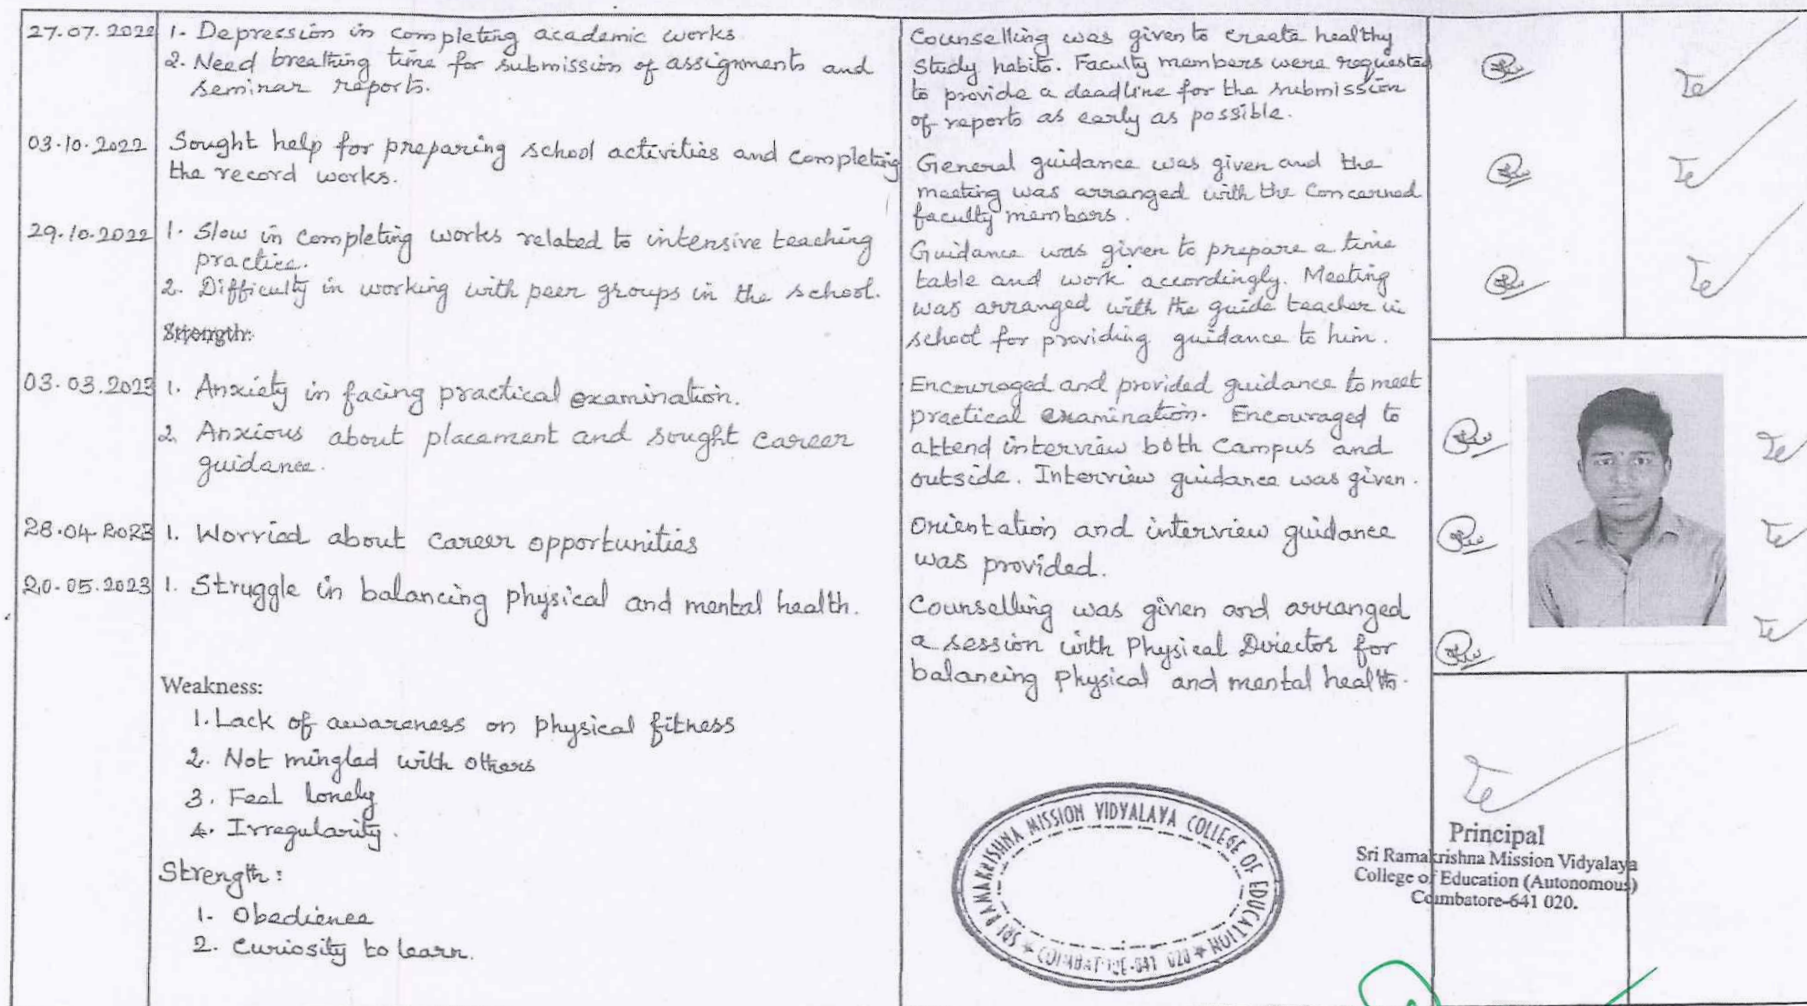 27.07.2022 1. Depression in completing academic works.
2. Need breathing time for submission of assignments and
seminar reports.
Counselling was given to create healthy
study habits. Faculty members were requested
to provide a deadline for the submission
of reports as early as possible.
03.10.2022 Sought help for preparing school activities and completing
the record works.
General guidance was given and the
meeting was arranged with the concerned
faculty members.
29.10.2022 1. Slow in completing works related to intensive teaching
practice.
2. Difficulty in working with peer groups in the school.
Strength:
Guidance was given to prepare a time
table and work accordingly. Meeting
was arranged with the guide teacher in
school for providing guidance to him.
03.03.2023 1. Anxiety in facing practical examination.
2. Anxious about placement and sought career
guidance.
Encouraged and provided guidance to meet
practical examination. Encouraged to
attend interview both campus and
outside. Interview guidance was given.
28.04.2023 1. Worried about career opportunities
Orientation and interview guidance
was provided.
20.05.2023 1. Struggle in balancing physical and mental health.
Counselling was given and arranged
a session with Physical Director for
balancing physical and mental health.
Weakness:
1. Lack of awareness on physical fitness
2. Not mingled with others
3. Feel lonely
4. Irregularity.
Strength:
1. Obedience
2. Curiosity to learn.
SRI RAMAKRISHNA MISSION VIDYALAYA COLLEGE OF EDUCATION
COIMBATORE-641 020
Principal
Sri Ramakrishna Mission Vidyalaya
College of Education (Autonomous)
Coimbatore-641 020.